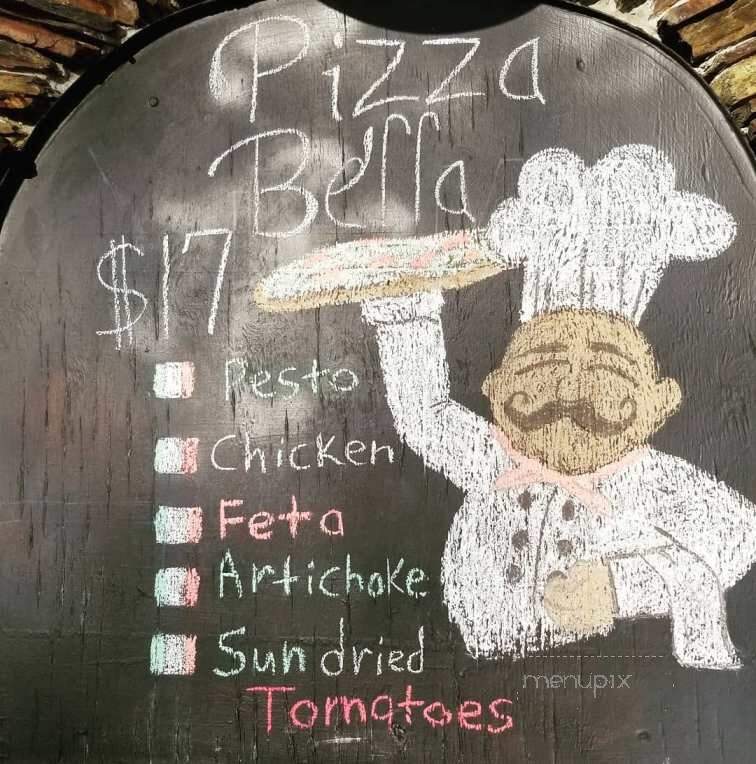 Pizza
Bella
$17
Pesto
Chicken
Feta
Artichoke
Sun dried
Tomatoes
menupix